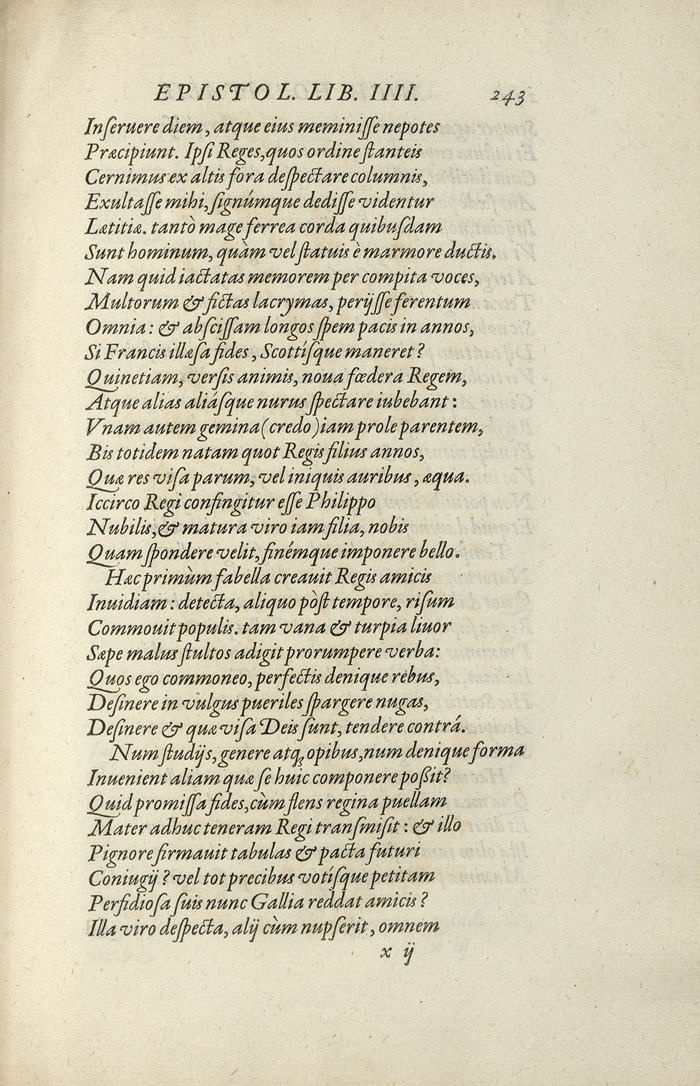 EPISTOL. LIB. IIII. 243
Inſeruere diem, atque eius meminiſſe nepotes
Præcipiunt. Ipſi Reges, quos ordine ſtanteis
Cernimus ex altis fora deſpectare columnis,
Exultaſſe mihi, ſignúmque dediſſe videntur
Lætitiæ. tantò mage ferrea corda quibuſdam
Sunt hominum, quàm vel ſtatuis è marmore ductis.
Nam quid iactatas memorem per compita voces,
Multorum & fictas lacrymas, perijſſe ferentum
Omnia: & abſciſſam longos ſpem pacis in annos,
Si Francis illæſa fides, Scottíſque maneret?
Quinetiam, verſis animis, noua fœdera Regem,
Atque alias aliáſque nurus ſpectare iubebant:
Vnam autem gemina (credo) iam prole parentem,
Bis totidem natam quot Regis filius annos,
Quæ res viſa parum, vel iniquis auribus, æqua.
Iccirco Regi confingitur eſſe Philippo
Nubilis, & matura viro iam filia, nobis
Quam ſpondere velit, finémque imponere bello.
Hæc primùm fabella creauit Regis amicis
Inuidiam: detecta, aliquo pòſt tempore, riſum
Commouit populis. tam vana & turpia liuor
Sæpe malus ſtultos adigit prorumpere verba:
Quos ego commoneo, perfectis denique rebus,
Deſinere in vulgus pueriles ſpargere nugas,
Deſinere & quæ viſa Deis ſunt, tendere contrá.
Num ſtudijs, genere atq; opibus, num denique forma
Inuenient aliam quæ ſe huic componere poßit?
Quid promiſſa fides, cùm flens regina puellam
Mater adhuc teneram Regi tranſmiſit: & illo
Pignore firmauit tabulas & pacta futuri
Coniugij? vel tot precibus votíſque petitam
Perfidioſa ſuis nunc Gallia reddat amicis?
Illa viro deſpecta, alij cùm nupſerit, omnem
x ij